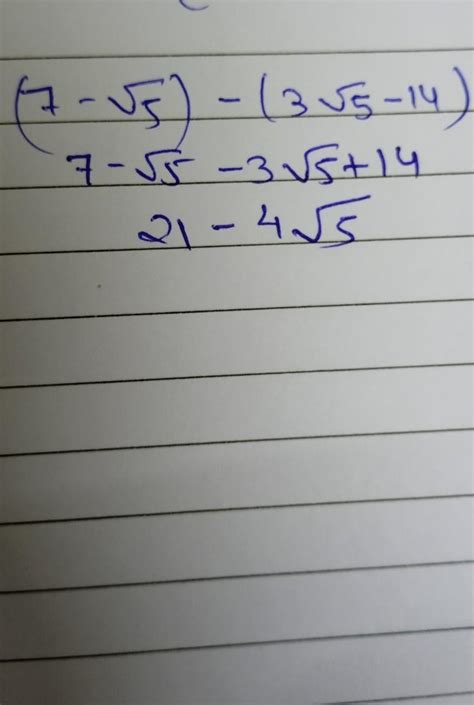 (7 - √5) - (3√5 - 14)
7 - √5 - 3√5 + 14
21 - 4√5